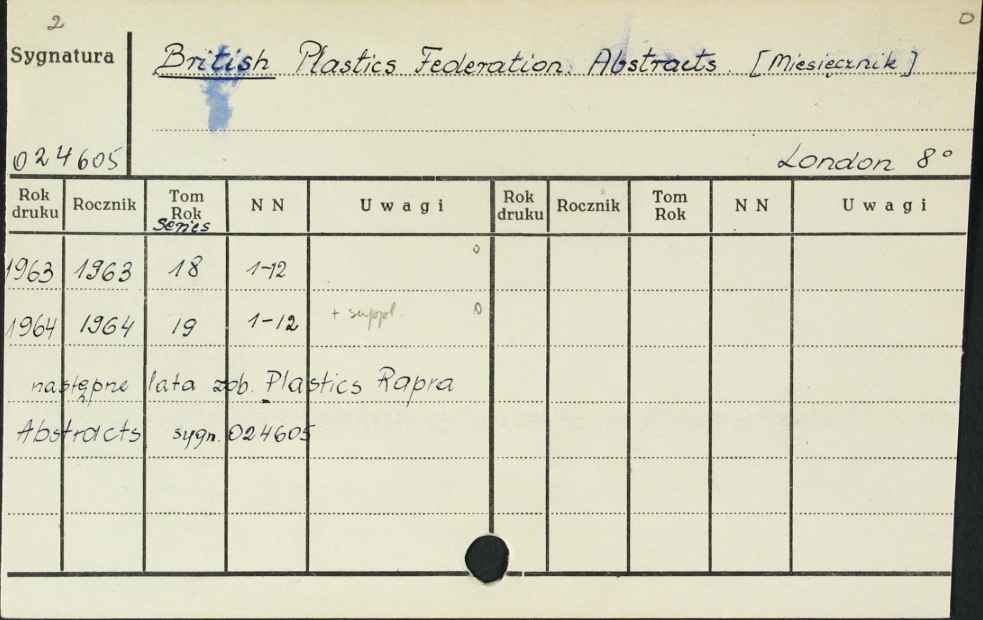 2
Sygnatura
British Plastics Federation. Abstracts. [Miesięcznik]
024605
London 8°
Rok druku Rocznik Tom Rok Series N N Uwagi Rok druku Rocznik Tom Rok N N Uwagi
1963 1963 18 1-12 0
1964 1964 19 1-12 + suppl. 0
następne lata zob. Plastics Rapra
Abstracts sygn. 024605